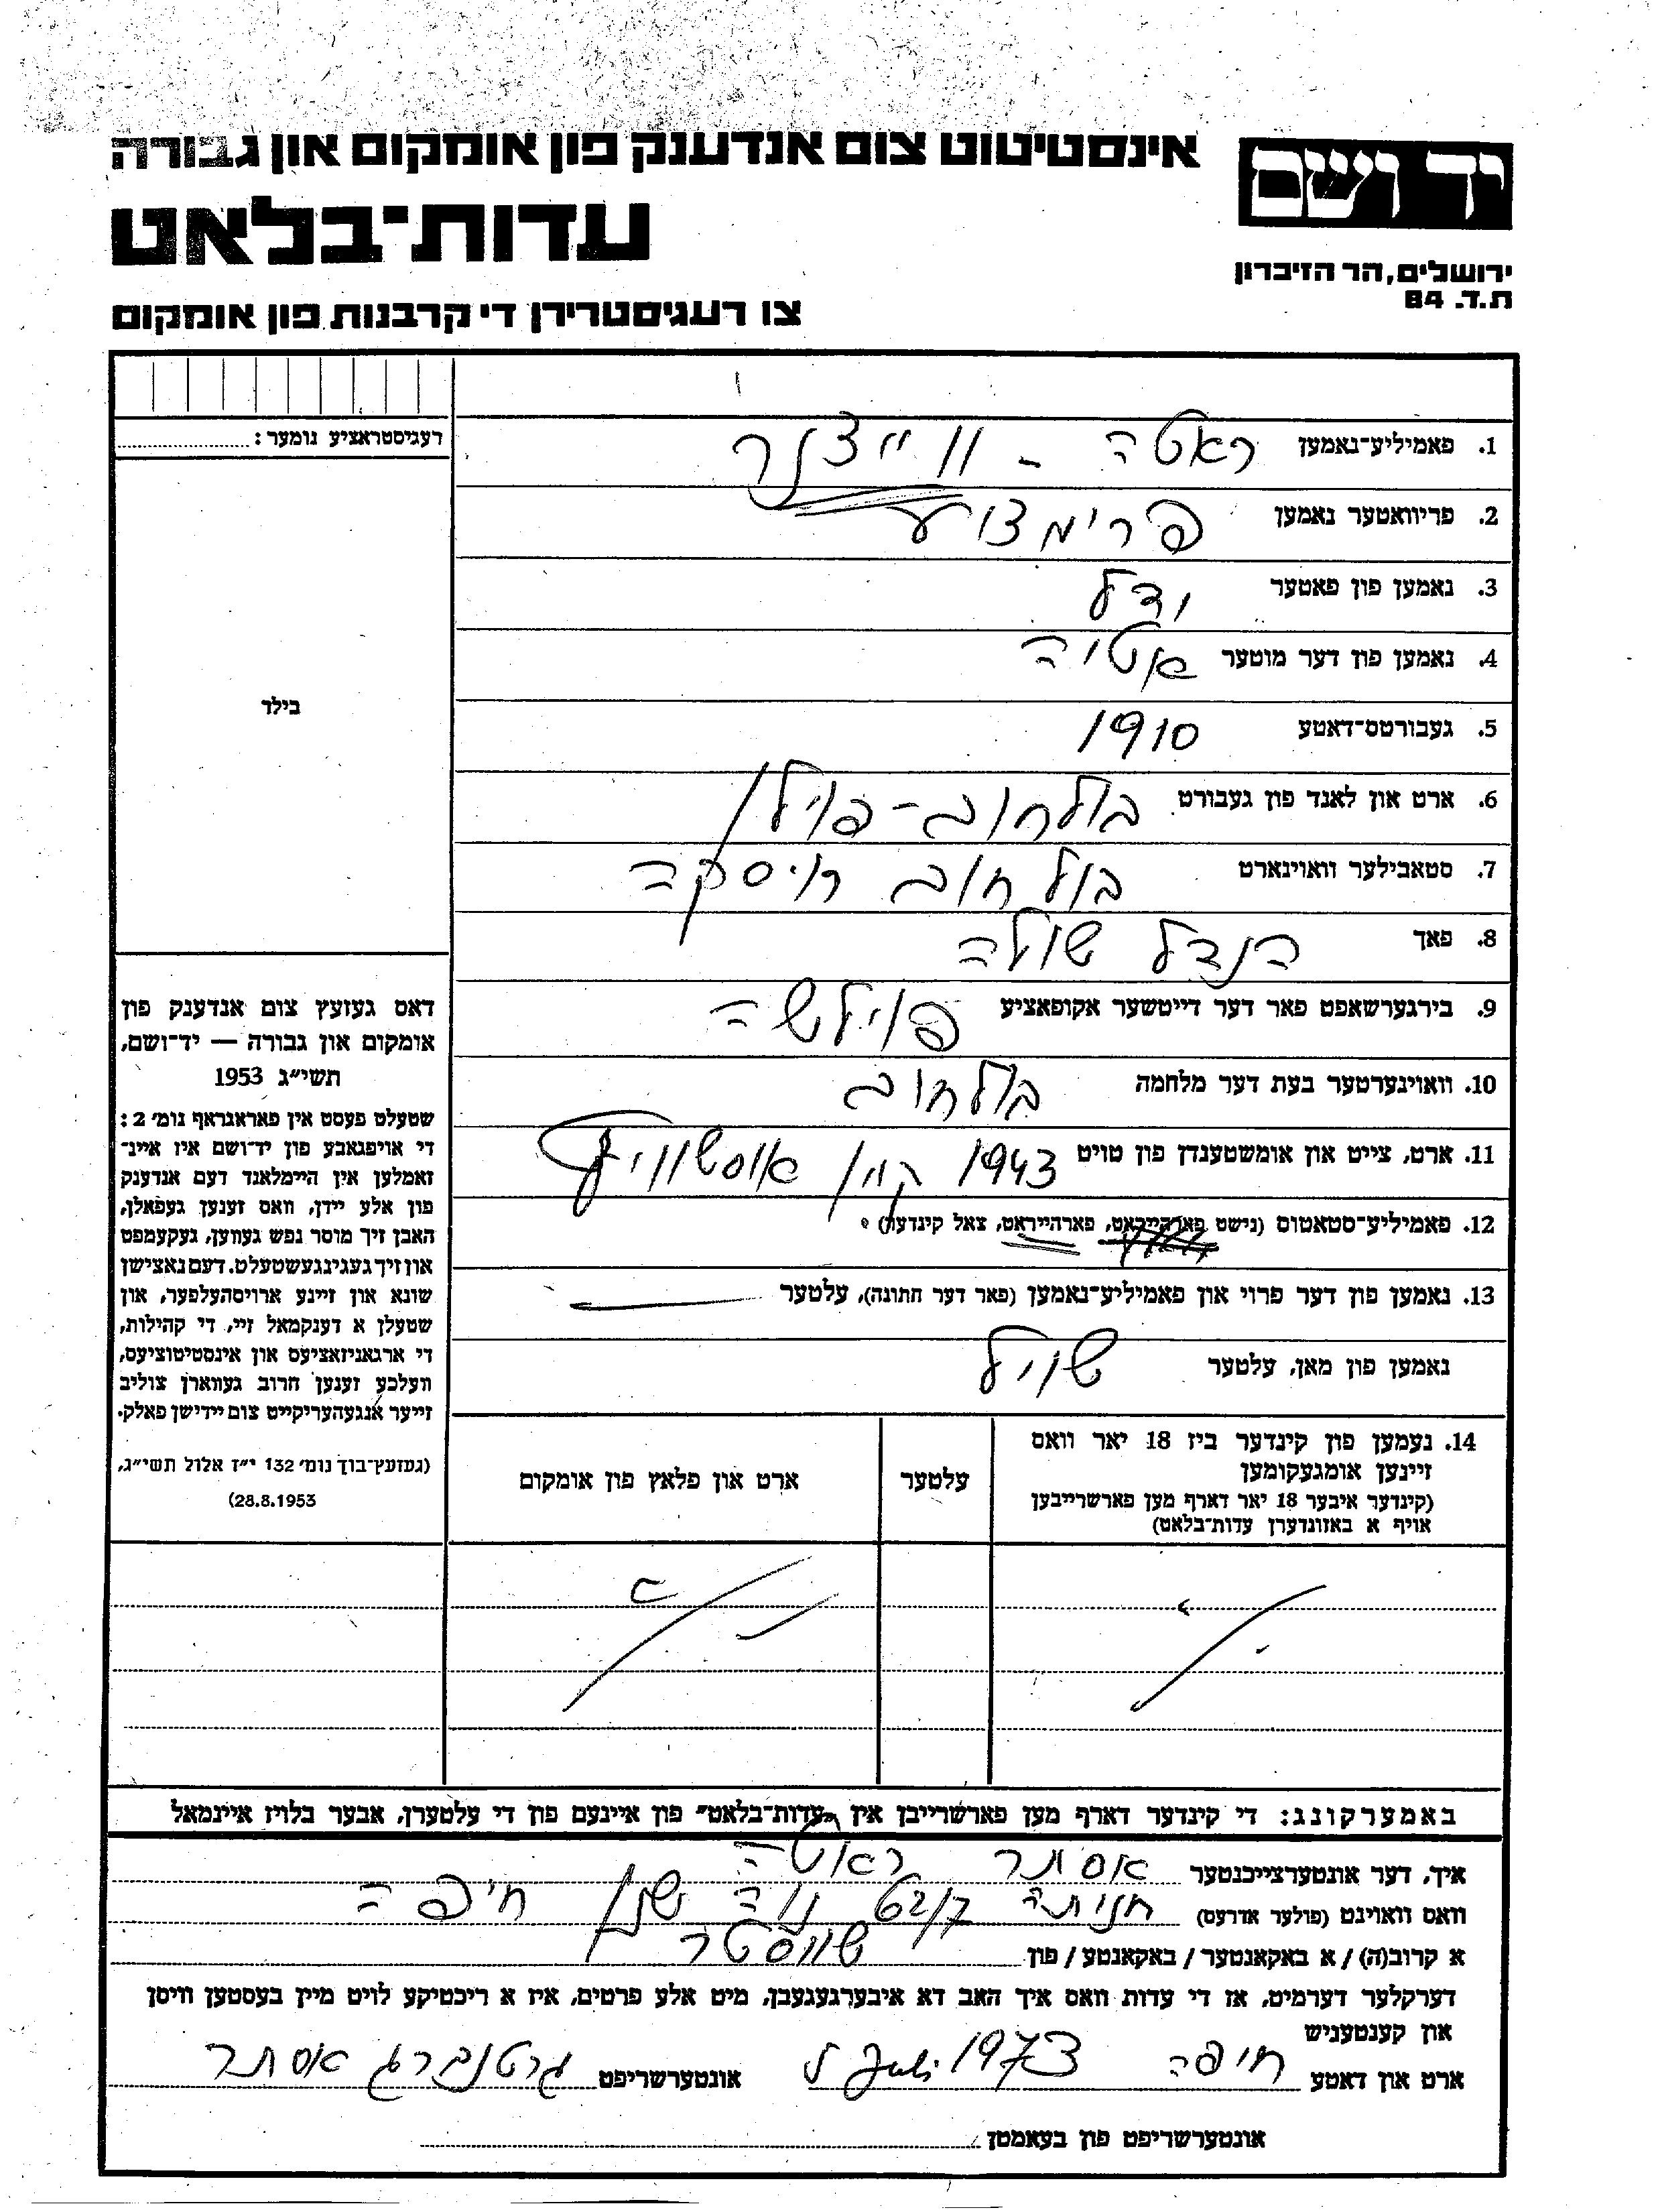 אינסטיטוט צום אנדענק פון אומקום און גבורה
יד ושם
עדות־בלאט
ירושלים, הר הזיכרון
ת.ד. 84
צו רעגיסטרירן די קרבנות פון אומקום
רעגיסטראציע נומער:
בילד
1. פאמיליע־נאמען ראטה - ווייצנר
2. פריוואטער נאמען
3. נאמען פון פאטער ודל
4. נאמען פון דער מוטער אטיה
5. געבורטס־דאטע 1910
6. ארט און לאנד פון געבורט בולחוב - פוילן
7. סטאבילער וואוינארט בולחוב
8. פאך הנדל שולה
9. בירגערשאפט פאר דער דייטשער אקופאציע פוילשה
10. וואוינערטער בעת דער מלחמה בולחוב
11. ארט, צייט און אומשטענדן פון טויט 1943
12. פאמיליע־סטאטוס (נישט פארהייראט, פארהייראט, צאל קינדער)
13. נאמען פון דער פרוי און פאמיליע־נאמען (פאר דער חתונה), עלטער
נאמען פון מאן, עלטער שויל
14. נעמען פון קינדער ביז 18 יאר וואס
זיינען אומגעקומען
(קינדער איבער 18 יאר דארף מען פארשרייבן
אויף א באזונדערן עדות־בלאט)
עלטער
ארט און פלאץ פון אומקום
דאס געזעץ צום אנדענק פון
אומקום און גבורה — יד־ושם,
תשי״ג 1953
שטעלט פעסט אין פאראגראף נומ׳ 2:
די אויפגאבע פון יד־ושם איז איינ־
זאמלען אין היימלאנד דעם אנדענק
פון אלע יידן, וואס זענען געפאלן,
האבן זיך מוסר נפש געווען, געקעמפט
און זיך געגינגעשטעלט. דעם נאצישן
שונא און זיינע ארויסהעלפער, און
שטעלן א דענקמאל זיי, די קהילות,
די ארגאניזאציעס און אינסטיטוציעס,
וועלכע זענען חרוב געווארן צוליב
זייער אנגעהעריקייט צום יידישן פאלק.
(געזעץ־בוך נומ׳ 132 י״ז אלול תשי״ג,
28.8.1953)
באמערקונג: די קינדער דארף מען פארשרייבן אין „עדות־בלאט״ פון איינעם פון די עלטערן, אבער בלויז איינמאל
איך, דער אונטערצייכנטער אסתר ראטה
וואס וואוינט (פולער אדרעס) חניתה נוה שנן חיפה
א קרוב(ה) / א באקאנטער / באקאנטע / פון שווסטר
דערקלער דערמיט, אז די עדות וואס איך האב דא איבערגעגעבן, מיט אלע פרטים, איז א ריכטיקע לויט מיין בעסטען וויסן
און קענטעניש
ארט און דאטע חיפה 1973 Juli אונטערשריפט גרטנברג אסתר
אונטערשריפט פון בעאמטן